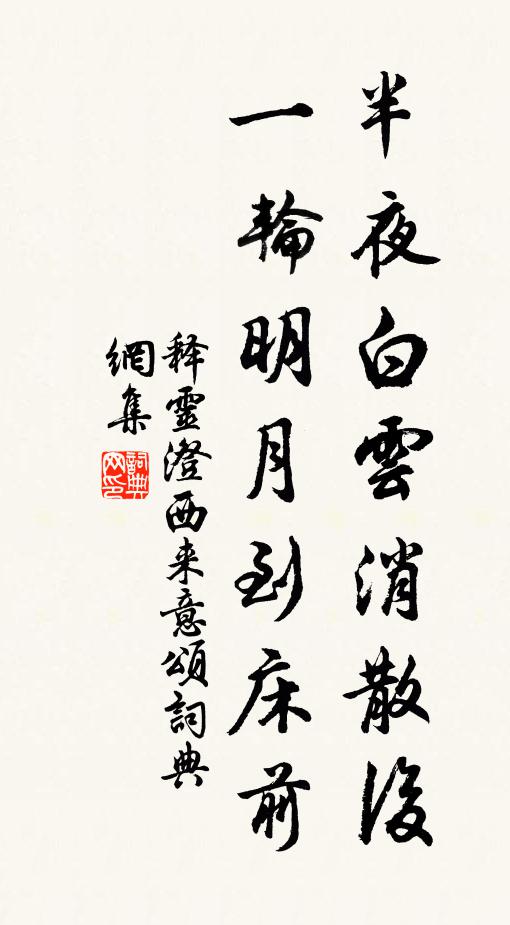 半夜白雲消散後
一輪明月到床前
释靈澄西来意頌詞典
網集
詞典网印